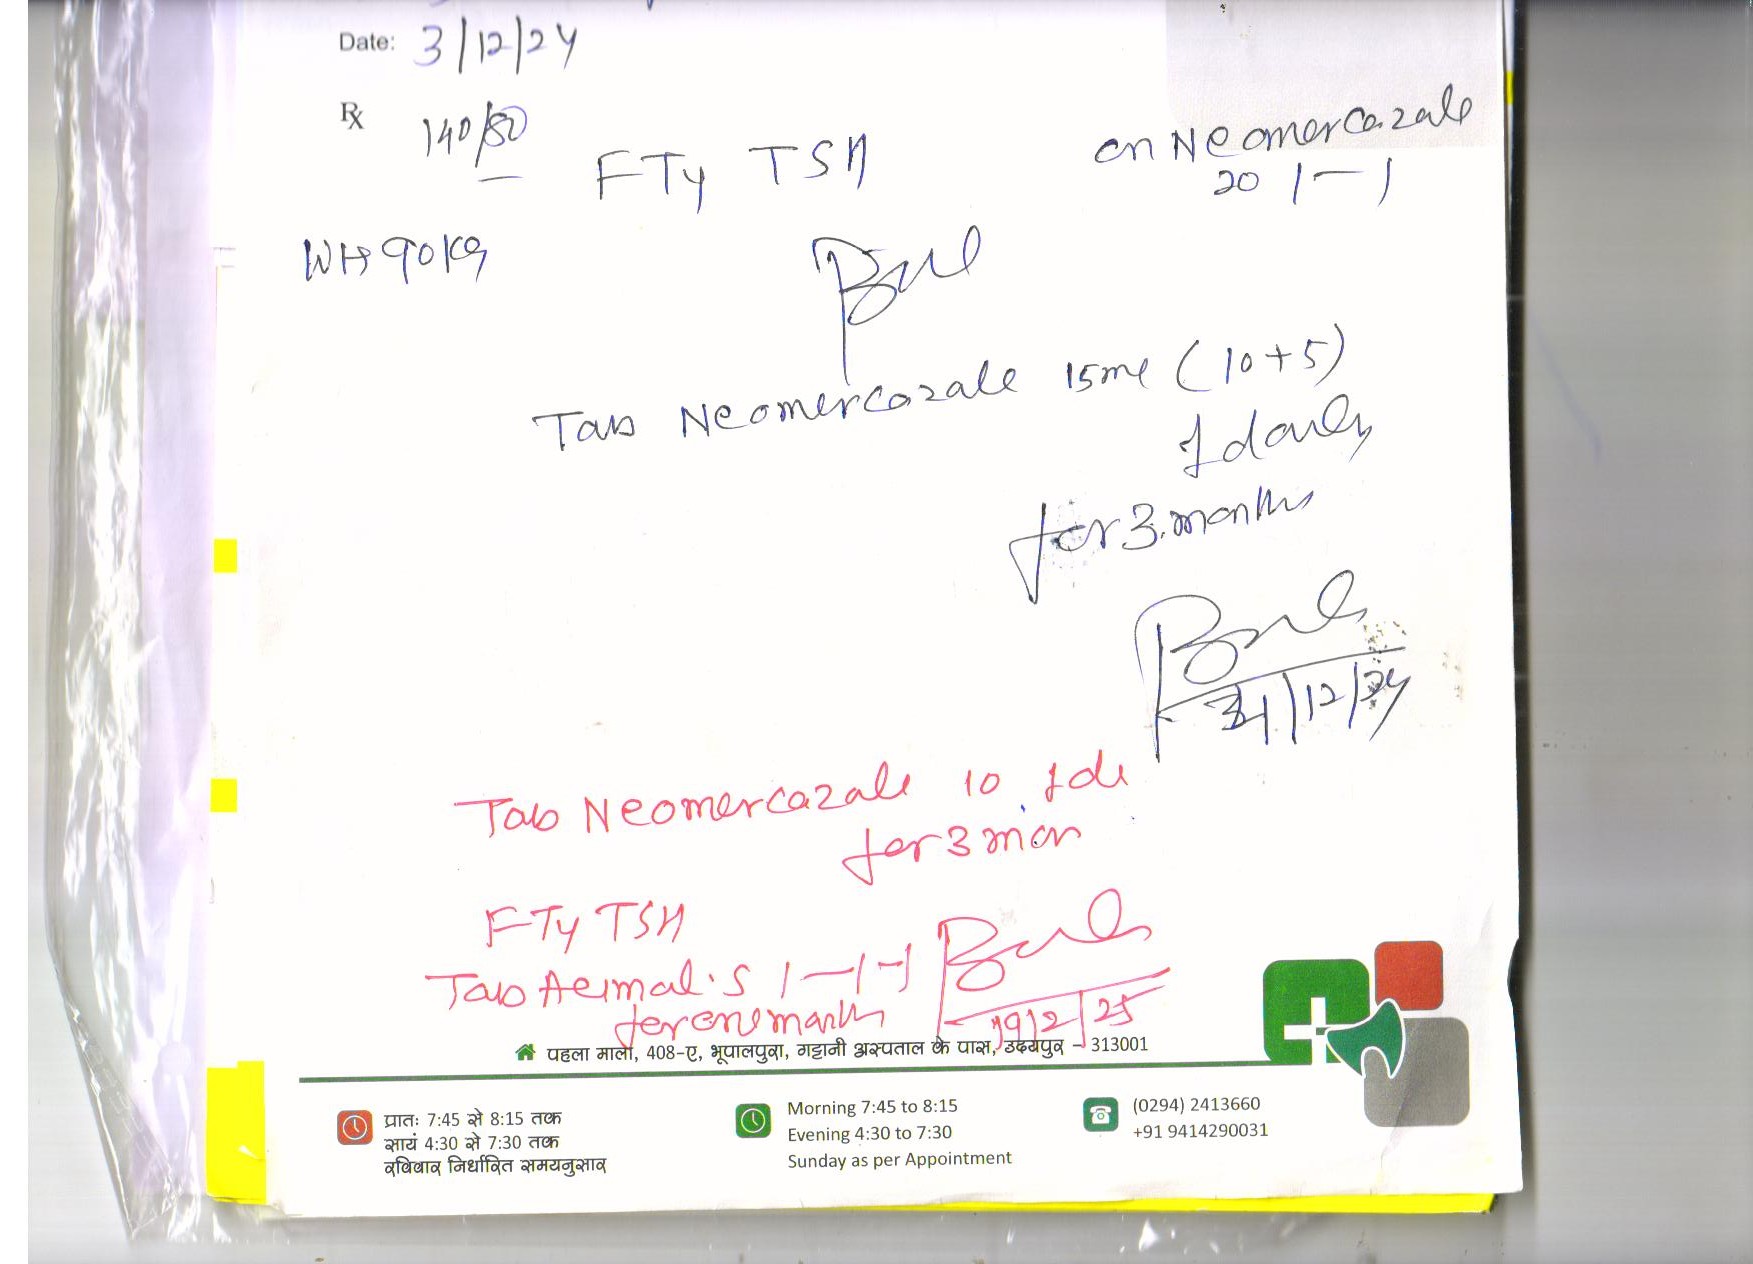 Date: 3/12/24
Rx 140/80
FT4 TSH
on Neomercazale
20 1-1
Wt→90Kg
Tab Neomercazale 15mg (10+5)
1 daily
for 3 months
31/12/24
Tab Neomercazale 10 1 d
for 3 mon
FT4 TSH
Tab 1-1-1
for one month
19/2/25
पहला माला, 408-ए, भूपालपुरा, गट्टानी अस्पताल के पास, उदयपुर - 313001
प्रातः 7:45 से 8:15 तक
सायं 4:30 से 7:30 तक
रविवार निर्धारित समयनुसार
Morning 7:45 to 8:15
Evening 4:30 to 7:30
Sunday as per Appointment
(0294) 2413660
+91 9414290031